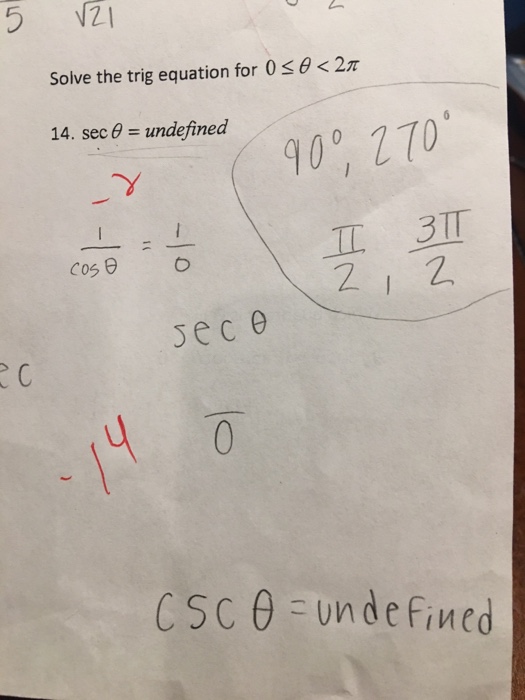 5 √21 2
Solve the trig equation for 0 ≤ θ < 2π
14. sec θ = undefined
90°, 270°
-2
1/cos θ = 1/0
π/2, 3π/2
sec θ
ec
-14
‾0
csc θ = undefined